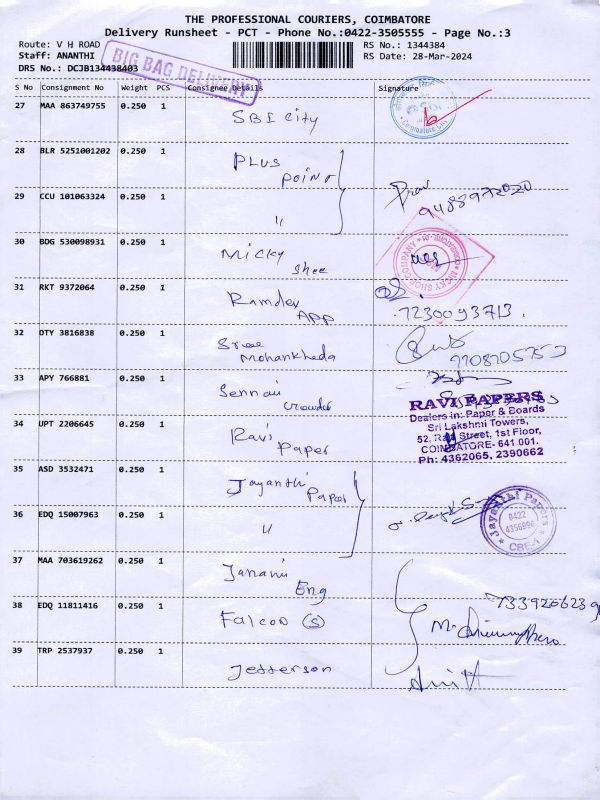 THE PROFESSIONAL COURIERS, COIMBATORE
Delivery Runsheet - PCT - Phone No.:0422-3505555 - Page No.:3
Route: V H ROAD
RS No.: 1344384
Staff: ANANTHI
RS Date: 28-Mar-2024
DRS No.: DCJB134438403
BIG BAG DELIVERY
S No Consignment No Weight PCS Consignee Details Signature
27 MAA 863749755 0.250 1 SBI City
28 BLR 5251001202 0.250 1 PLUS POINT
29 CCU 101063324 0.250 1 "
9488972020
30 BDG 530098931 0.250 1 Micky Shoe
31 RKT 9372064 0.250 1 Ramdev APP
7230093713.
32 OTY 3816838 0.250 1 Sree Mohankheda
33 APY 766881 0.250 1 Sennai
RAVI PAPERS
Dealers in: Paper & Boards
Sri Lakshmi Towers,
52, Street, 1st Floor,
COIMBATORE- 641 001.
Ph: 4362065, 2390662
34 UPT 2206645 0.250 1 Ravi Paper
35 ASD 3532471 0.250 1 Jayanthi Paper
36 EDQ 15007963 0.250 1 "
Jayanthi Papers
0422
4356996
CBE-1
37 MAA 703619262 0.250 1 Janani Eng
38 EDQ 11811416 0.250 1 Falcon (S)
39 TRP 2537937 0.250 1 Jefferson